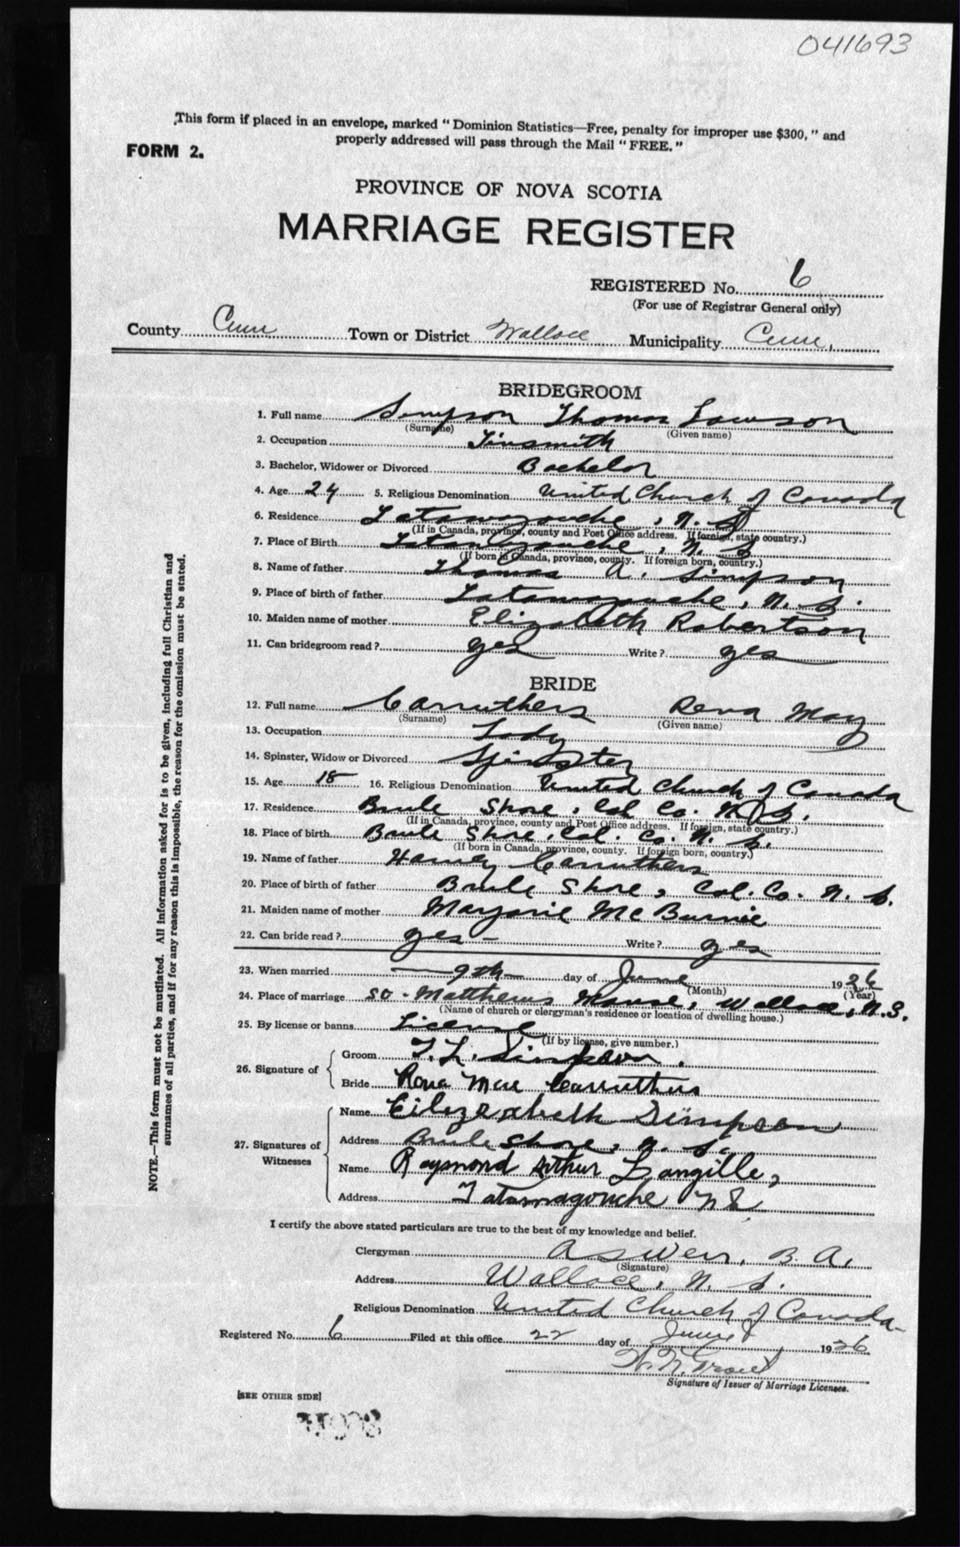 041693
This form if placed in an envelope, marked "Dominion Statistics—Free, penalty for improper use $300," and
properly addressed will pass through the Mail "FREE."
FORM 2.
PROVINCE OF NOVA SCOTIA
MARRIAGE REGISTER
REGISTERED No. 6
(For use of Registrar General only)
County Cum Town or District Wallace Municipality Cum.
BRIDEGROOM
1. Full name Simpson Thomas Lawson
(Surname) (Given name)
2. Occupation Tinsmith
3. Bachelor, Widower or Divorced Bachelor
4. Age 24 5. Religious Denomination United Church of Canada
6. Residence Tatamagouche, N. S.
(If in Canada, province, county and Post Office address. If foreign, state country.)
7. Place of Birth Tatamagouche, N. S
(If born in Canada, province, county. If foreign born, country.)
8. Name of father Thomas A. Simpson
9. Place of birth of father Tatamagouche, N. S.
10. Maiden name of mother Elizabeth Robertson
11. Can bridegroom read? yes Write? yes
BRIDE
12. Full name Carruthers Rena May
(Surname) (Given name)
13. Occupation Lady
14. Spinster, Widow or Divorced Spinster
15. Age 18 16. Religious Denomination United Church of Canada
17. Residence Brule Shore, Col Co. N. S.
(If in Canada, province, county and Post Office address. If foreign, state country.)
18. Place of birth Brule Shore, Col. Co. N. S.
(If born in Canada, province, county. If foreign born, country.)
19. Name of father Harvey Carruthers
20. Place of birth of father Brule Shore, Col. Co. N. S.
21. Maiden name of mother Marjorie McBurnie
22. Can bride read? yes Write? yes
23. When married 9th day of June 1926
(Month) (Year)
24. Place of marriage So. Matthews Manse, Wallace, N.S.
(Name of church or clergyman's residence or location of dwelling house.)
25. By license or banns License
(If by license, give number.)
26. Signature of
Groom T. L. Simpson.
Bride Rena Mae Carruthers
27. Signatures of Witnesses
Name Elizabeth Simpson
Address Brule Shore, N. S.
Name Raymond Arthur Langille,
Address Tatamagouche N S
I certify the above stated particulars are true to the best of my knowledge and belief.
Clergyman A S Weir, B. A.
(Signature)
Address Wallace, N. S.
Religious Denomination United Church of Canada
Registered No. 6 Filed at this office 22 day of June 1926
Signature of Issuer of Marriage Licenses.
[SEE OTHER SIDE]
NOTE.—This form must not be mutilated. All information asked for is to be given, including full Christian and
surnames of all parties, and if for any reason this is impossible, the reason for the omission must be stated.